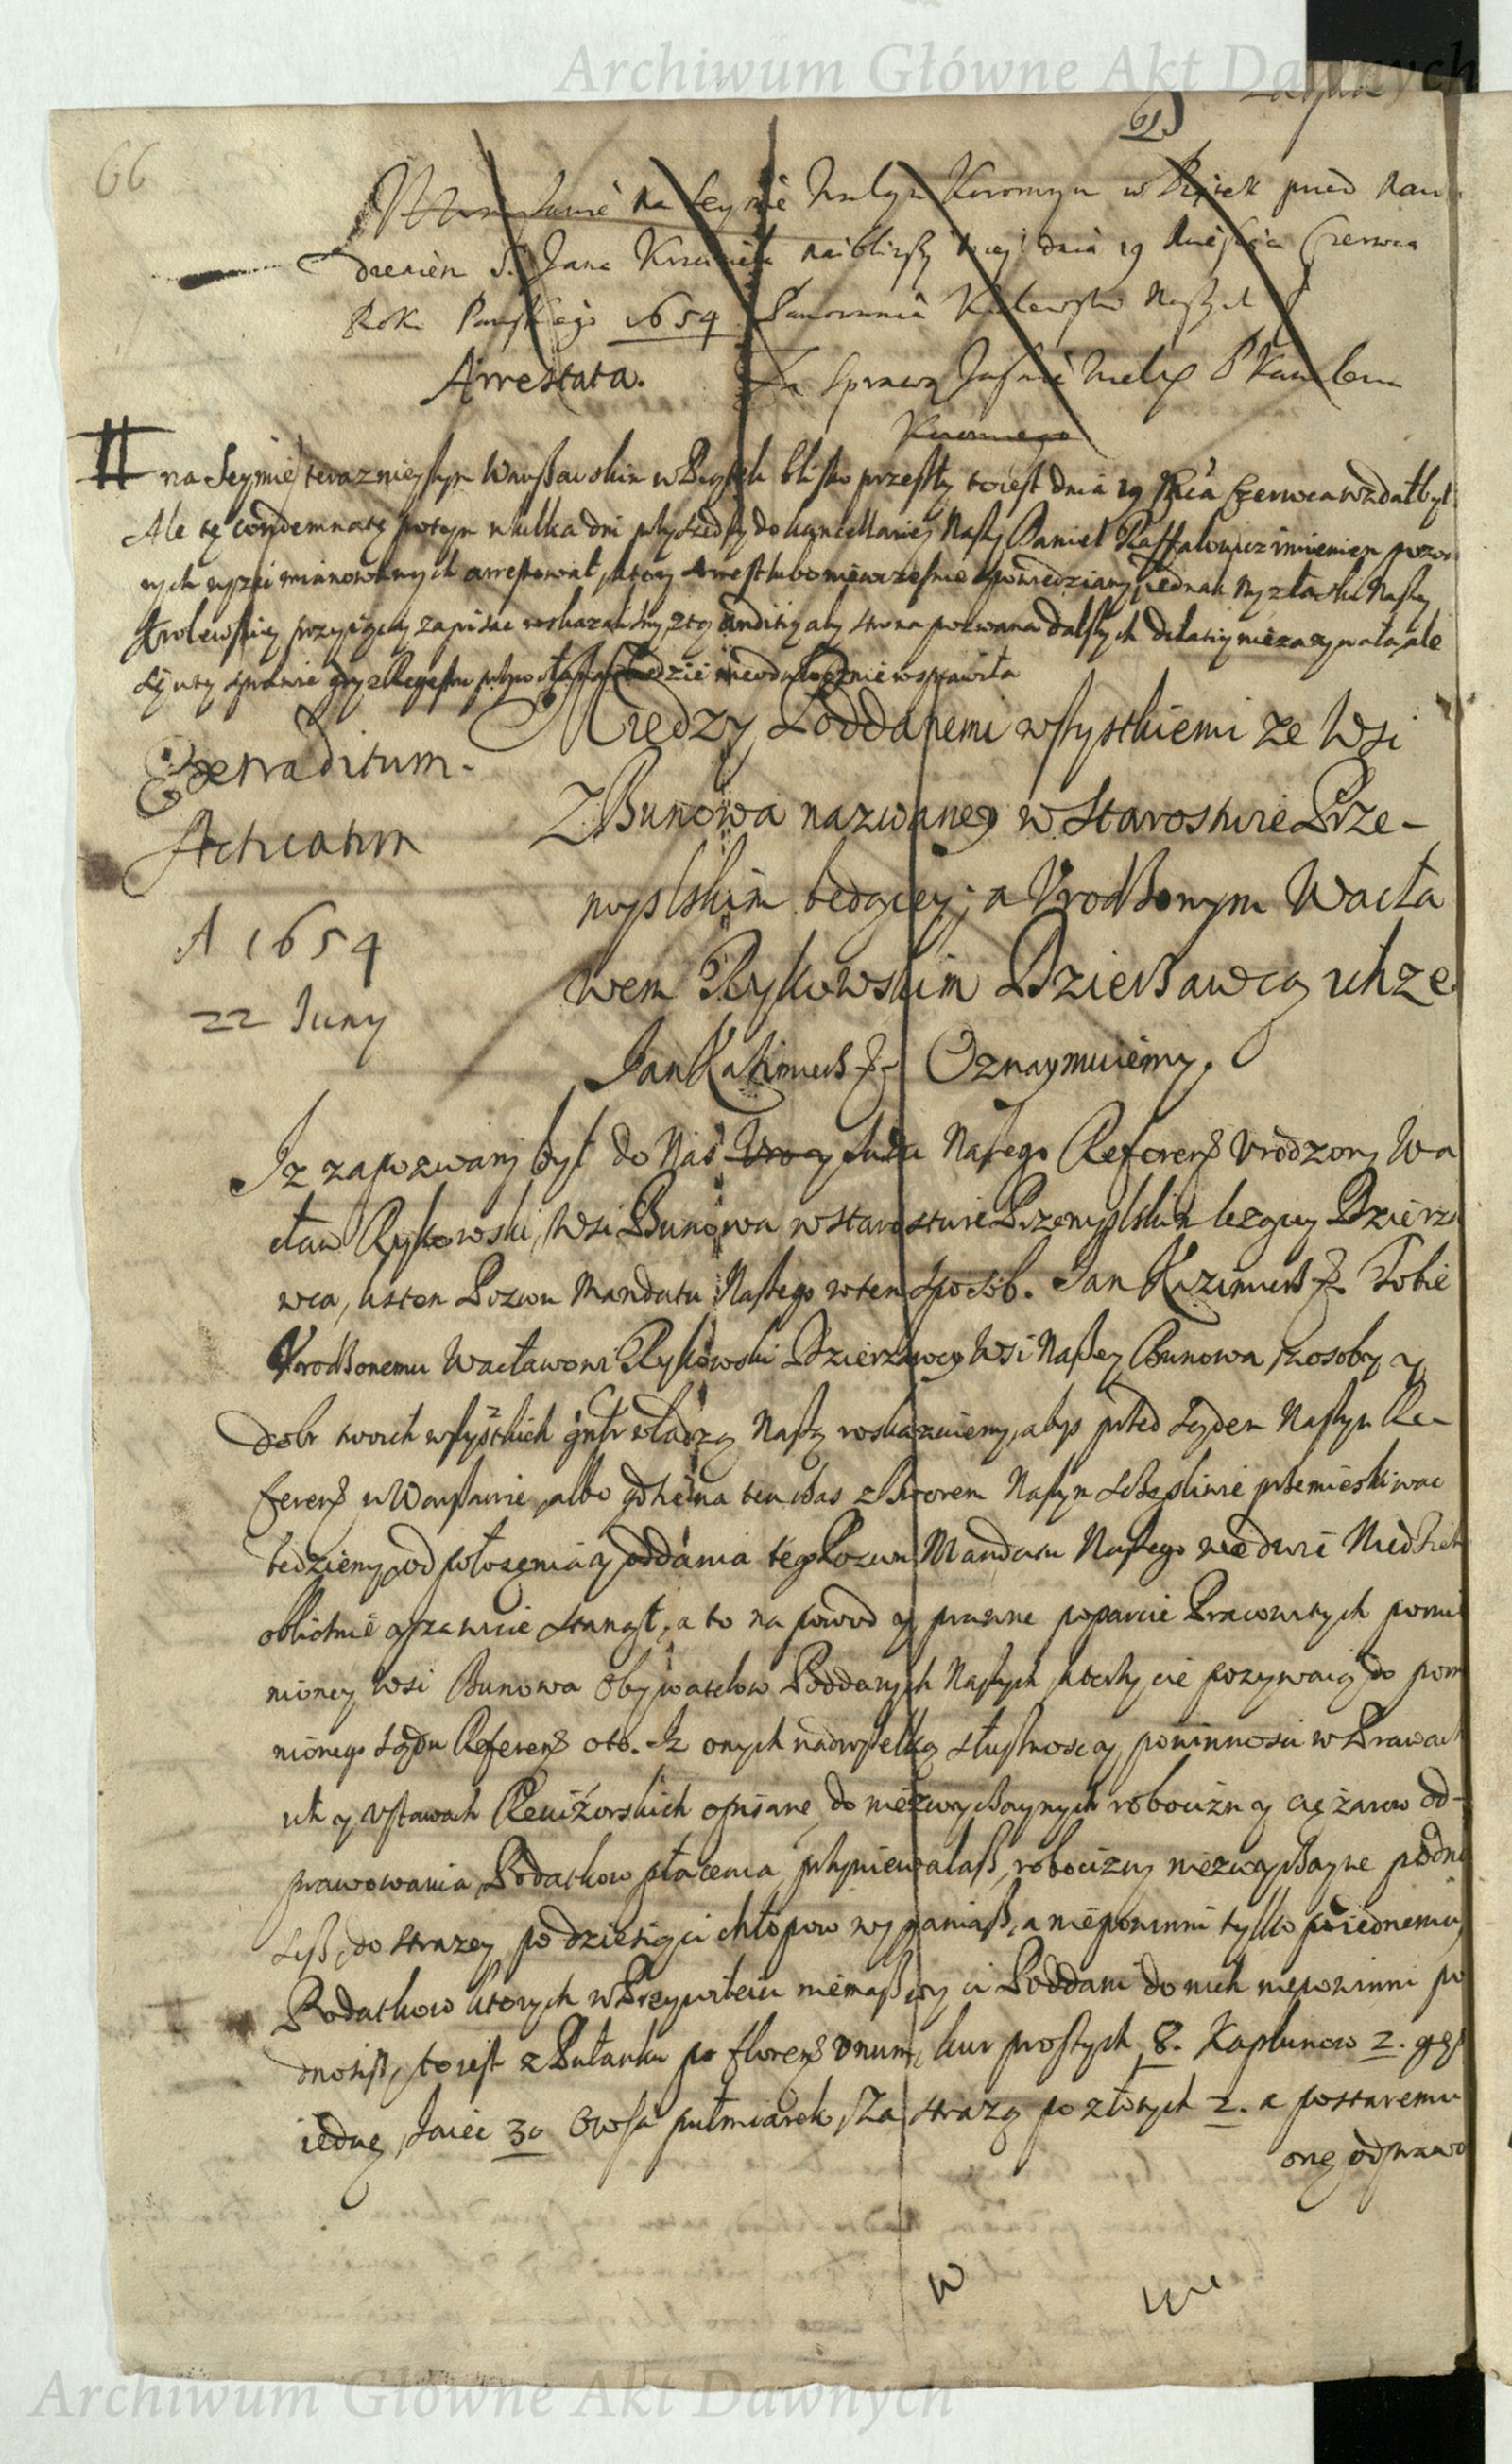 Archiwum Główne Akt Dawnych
66
61
na Seymie Walnym Koronnym w Piątek przed Naro
dzeniem S. Jana Krzciciela naiblizszy to iest dnia 19 Miesiąca Czerwca
Roku Pańskiego 1654 Panowania Krolewstw Naszych
Arrestata. Za sprawą Jasnie Wielg P Kanclerza
Koronnego
na Seymie terazniejszym Warszawskim w Piątek blisko przeszły to iest dnia 19 Mca Czerwca wzdał był
Ale tę condemnatę potym w kilka dni przyszedszy do kancellariey Naszey Daniel Raffałowicz imieniem pozwa
nych wyzei mianowanych arrestował, ktory Arrest lubo niewczesnie opowiedziany, iednak My z łaski Naszey
Krolewskiey przyięty zapisac roskazalismy, z tą conditią aby strona pozwana dalszych dilatiy niezazywała, ale
się w tey sprawie gdy z Regestru przywołana będzie nieodwłocznie rosprawiła
Extraditum.
Acticatum
A 1654
22 Juny
Między Poddanemi wszystkiemi ze Wsi
Bunowa nazwaney w Starostwie Prze-
myslskim będącey; a Vrodzonym Wacła
wem Rykowskim Dzierzawcą tchze
Jan Kazimierz Oznaymuiemy.
Iz zapozwany był do Nas Sądu Naszego Referens Vrodzony Wa
cław Rykowski, Wsi Bunowa w starostwie Przemyslskim lezący Dzierza
wca, ktorem Pozwu Mandatu Naszego w ten sposob. Jan Kazimierz Tobie
Vrodzonemu Wacławowi Rykowski Dzierzawcy Wsi Naszey Bunowa, z osoby y
dobr twoich wszystkich władzą Naszą roskazuiemy, abys przed Sądem Naszym Re-
ferens w Warszawie, albo gdzie na ten czas z Dworem Naszym szczęsliwie przemieszkiwac
będziemy, od połozenia y oddania tego Pozwu Mandatu Naszego we dwie Niedziele
oblicznie y zawicie stanął, a to na powod y prawne poparcie Pracowitych pomie
nioney wsi Bunowa obywatelow Poddanych Naszych, ktorzy cie pozywaią do pomie
nionego Sądu Referens oto. Iz onych nad wszelką słusznosc y powinnosci w Prawach
ich y Vstawach Rewizorskich opisane, do niezwyczaynych robocizn y cięzarow od-
prawowania, Podatkow płacenia, przyniewalasz, robocizny niezwyczayne podno
sisz, do strazey po dziesiąci chłopow wyganiasz, a niepowinni tylko po iednemu,
Podatkow ktorych w Przywileiu niemasz y ci Poddani do nich niepowinni po
dnosisz, to iest z Pułanku po florens unum, kur prostych 8. Kapłunow 2. gęs
iednę, Jaiec 30 Owsa pułmiarek, Za strazą po złotych 2. a postaremu
onę odprawo
Archiwum Główne Akt Dawnych